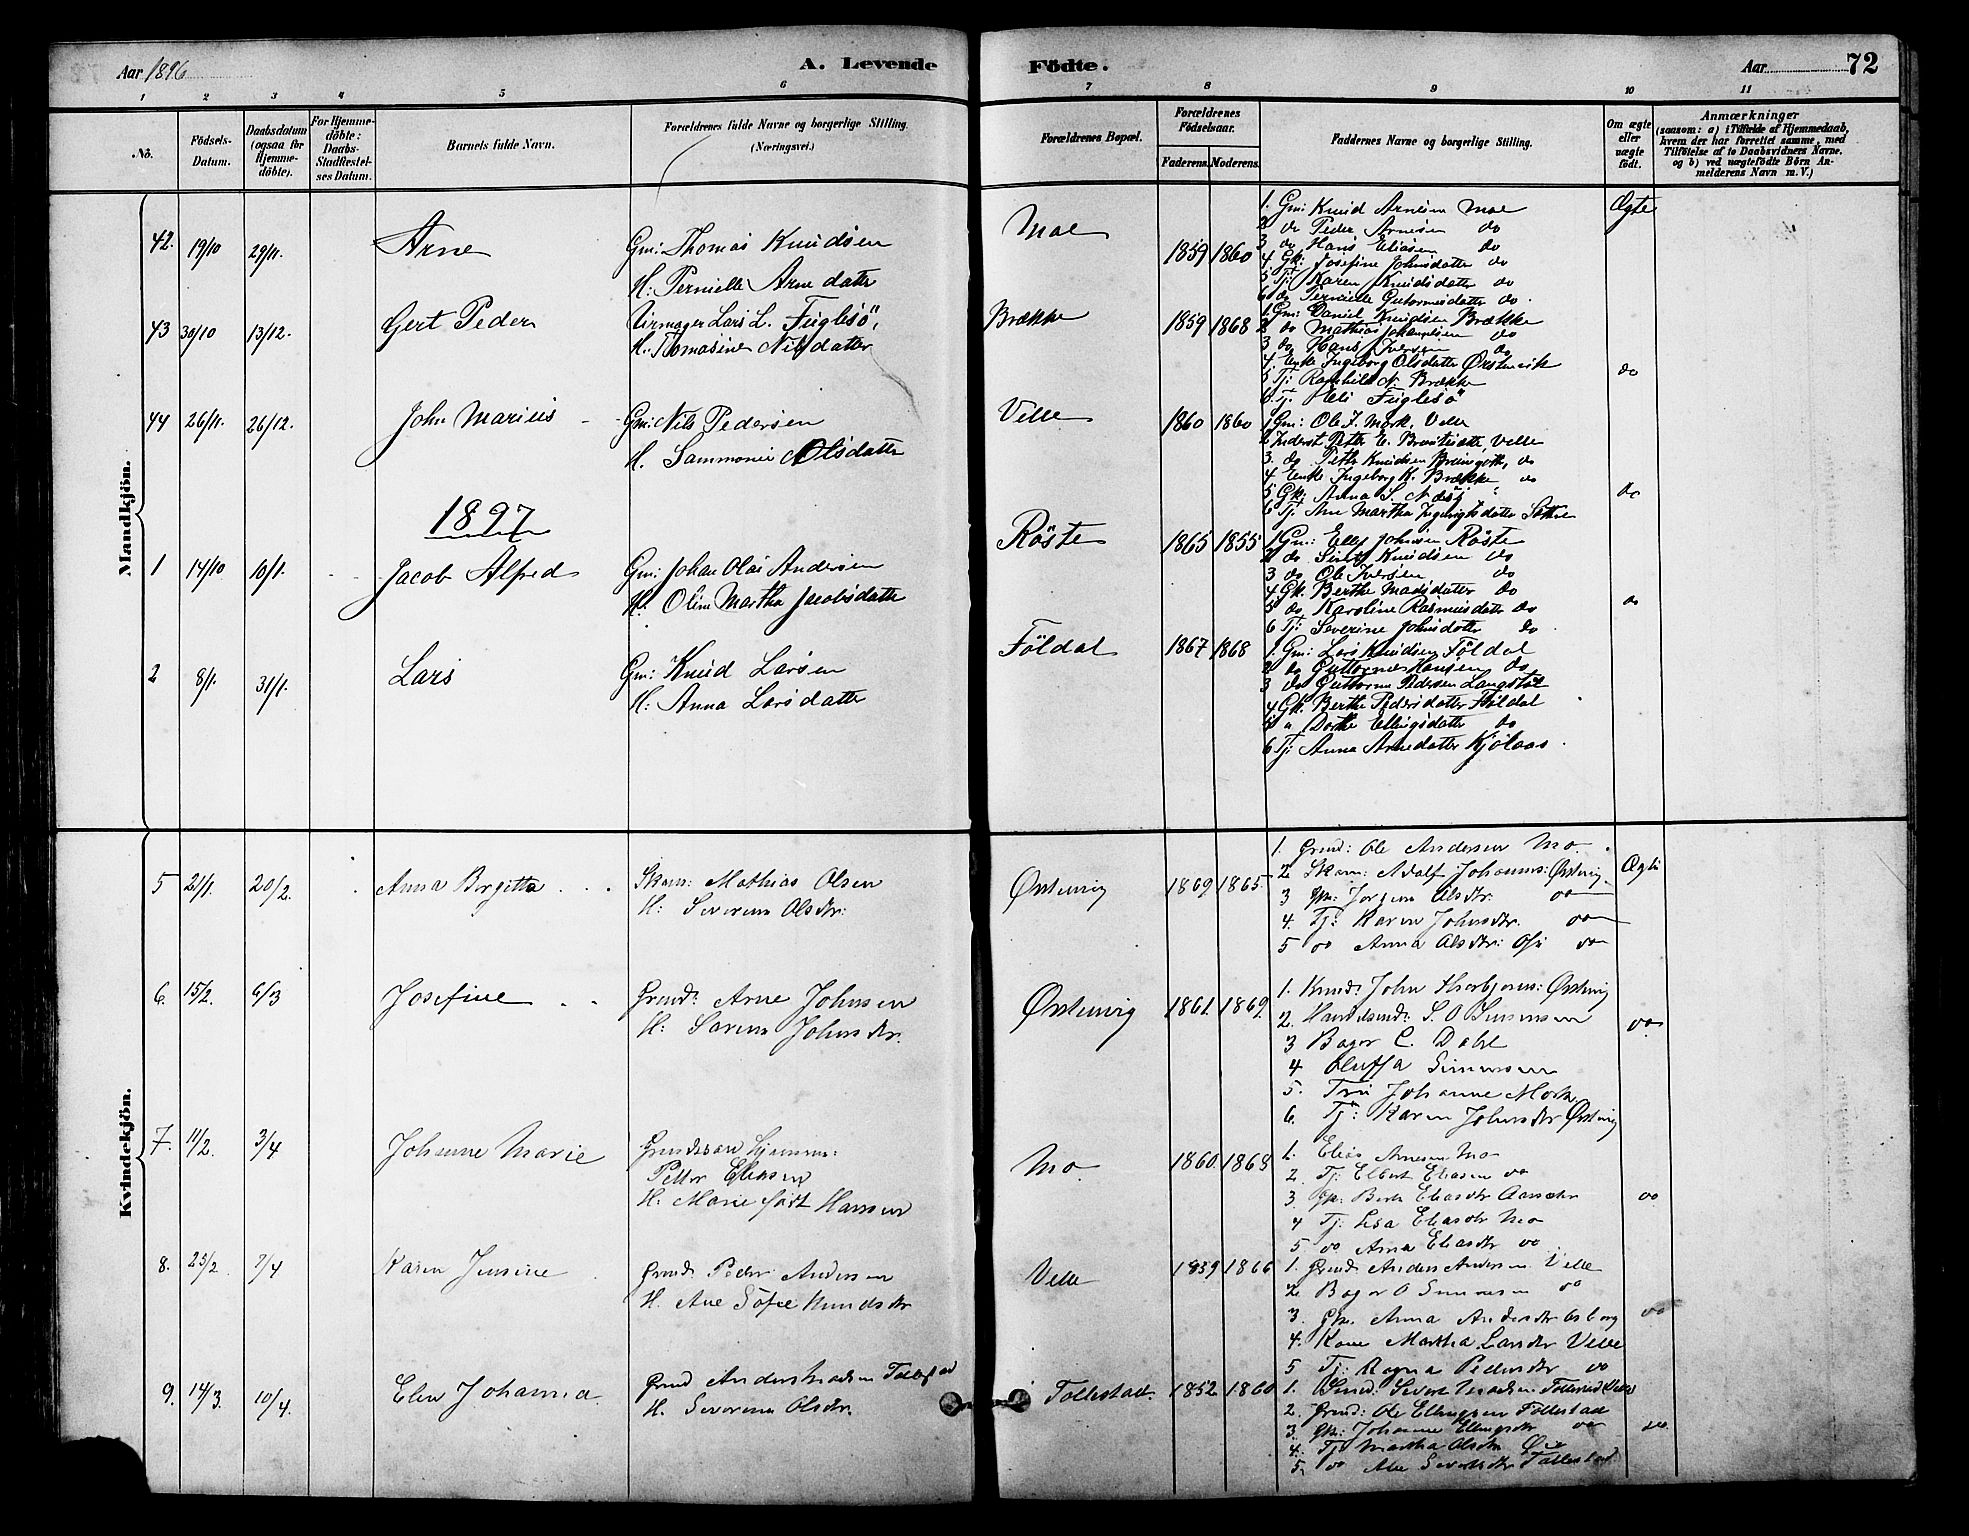 Aar 1896
A. Levende Födte.
Aar 72
1 2 3 4 5 6 7 8 9 10 11
No.
Födsels-Datum.
Daabsdatum (ogsaa for Hjemme-döbte).
For Hjemme-döbte: Daabs-Stadfæstelses Datum.
Barnets fulde Navn.
Forældrenes fulde Navne og borgerlige Stilling. (Næringsvei.)
Forældrenes Bopæl.
Forældrenes Födselsaar.
Faderens. Moderens.
Faddernes Navne og borgerlige Stilling.
Om ægte eller uægte födt.
Anmærkninger
(saasom: a) i Tilfælde af Hjemmedaab, hvem der har forrettet samme, med Tilföielse af to Daabsvidners Navne, og b) ved uægtefödte Börn Anmelderens Navn m. V.)
Mandkjön.
42. 19/10 29/11. Arne
Gm: Thomas Knudsen
H: Pernielle Arnedatter
Moe 1859 1860
1. Gm: Knud Arnesen Moe
2 do Peder Arnesen do
3 do Hans Eliasen do
4 Gk: Josefine Johnsdatter do
5 Tj: Karen Knudsdatter do
6 do Pernielle Guttormsdatter do.
Ægte
43 30/10 13/12. Gert Peder
Lars L. Fuglesö,
H. Thomasine Nilsdatter
Brække 1859 1868
1 Gm: Daniel Knudsen Brække
2 do Mathias Johannesen do
3 do Hans Iversen do
4 Enke Ingeborg Olsdatter Ørstenvik
5 Tj: Ragnhild N. Brække
6. Tj: Fuglesö
do
44 26/11. 26/12. John Marius
Gm: Nils Pedersen
H. Olsdatter
Velle 1860 1860
1 Gm: Ole J. Mork, Velle
2 Petter E. Velle
3. do Knudsen do
4 Enke Ingeborg K. Brække do
5 Gk. Anna S.
6 Tj. Ane Martha
do
1897
1 14/10 10/1. Jacob Alfred
Gm: Johan Olai Andersen
H: Oline Martha Jacobsdatter
Röste 1865 1855
1 Gm: Johnsen Röste
2 do Sivert Knudsen do
3 do Ole Iversen do
4 Gk. Berthe Madsdatter do
5 do Karoline Rasmusdatter do
6 Tj: Severine Johnsdatter do
do
2 8/1. 31/1. Lars
Gm: Knud Larsen
H: Anna Larsdatter
Földal 1867 1868
1. Gm: Lars Knudsen Földal
2 do Guttorm Hansen do
3 do Guttorm Pedersen Langstöl
4 Gk. Berthe Pedersdatter Földal
5 " Dorthe Ellingsdatter do
6 Tj: Anna Arnedatter Kjölaas.
Kvindekjön.
5 21/1. 20/2. Anna Birgitta
Mathias Olsen
H: Severine Olsdtr:
Østenvig 1869 1865
1. Grmd: Ole Andersen Mo.
2 Adolf Johannes: Østenvig
3 Gk: Olsdtr. do
4. Tj: Karen Johnsdtr. do
5 do Anna Olsdtr: do
Ægte
6. 15/2. 6/3 Josefine
Grmd: Arne Johnsen
H: Johnsdtr.
Østenvig 1861. 1869.
1. John Thorbjörns: Østenvig
2. S. O Simensen
3 Bager C. Dahl
4 Oluffa Simensen
5. Johanne Mork
6. Tj: Karen Johnsdtr Østenvig
do
7. 11/2. 3/4 Johanne Marie
Petter Eliasen
H: Marie födt Hansen
Mo 1860. 1868
1. Elias Arnesen Mo
2. Tj: Elbert Eliasen do
3 Gk: Berte Eliasdtr
4 Tj: Lisa Eliasdtr Mo
5 do Anna Eliasdtr do
do
8. 25/2. 7/4 Karen Jensine
Grmd: Peder Andersen
H. Ane Sofie Knudsdtr
Velle 1839 1866
1. Grmd: Anders Andersen Velle
2. Bager O Simensen do
3. Gk. Anna Andersdtr
4. Kone Martha Larsdtr Velle
5 Tj: Ragna Pedersdtr do
do
9. 14/3. 10/4. Elen Johanna
Grmd Anders Follestad
H. Severine Olsdtr.
Follestad. 1852. 1860
1. Sivert
2. Grmd: Ole Ellingsen Follestad
3. Gk: Johanne Ellingsdtr do
4. Tj Martha Olsdtr
5. do Ane Sivertsdtr Follestad
do